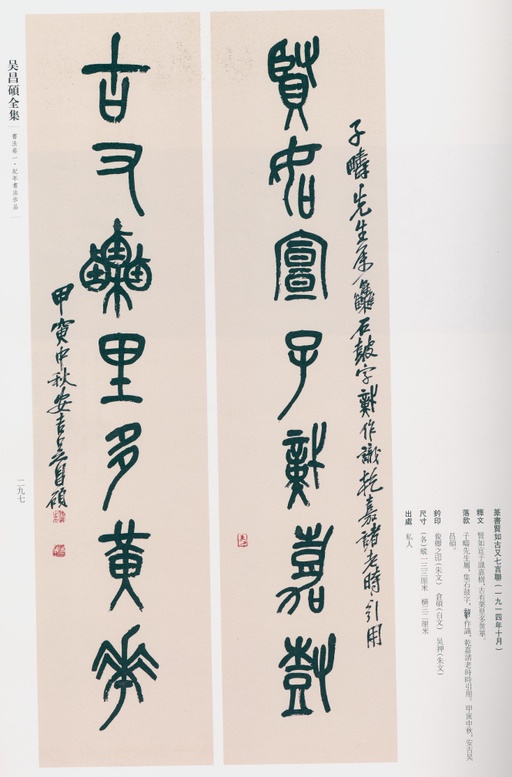 賢如宣子識嘉樹
子疇先生属集石鼓字作識乾嘉諸老時時引用
古又栗里多黃華
甲寅中秋安吉吴昌碩
吴昌碩全集
書法卷一·紀年書法作品
二九七
篆書賢如古又七言聯（一九一四年十月）
釋文 賢如宣子識嘉樹，古有栗里多黃華。
落款 子疇先生属，集石鼓字。作識，乾嘉諸老時時引用。甲寅中秋，安吉吴
昌碩。
鈐印 俊卿之印（朱文） 倉碩（白文） 吴押（朱文）
尺寸 （各）縱一三三厘米 橫三二厘米
出處 私人